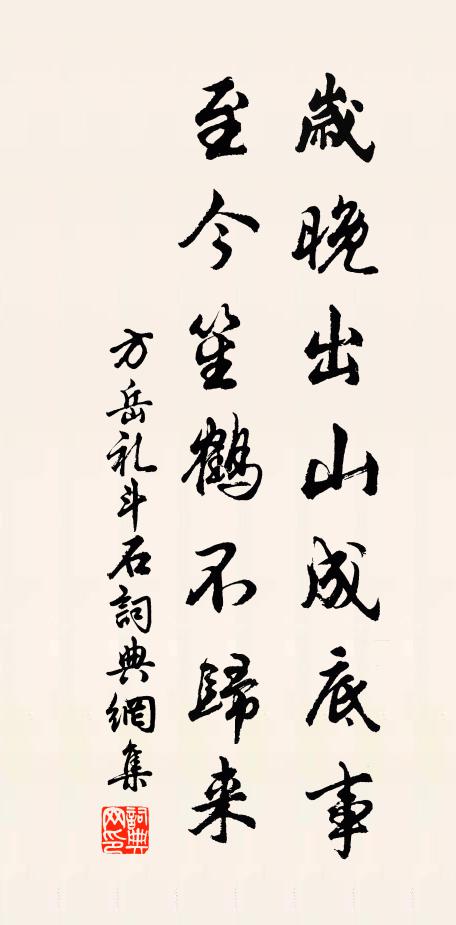 歲晚出山成底事
至今笙鶴不歸来
方岳礼斗石詞典網集
詞典网印